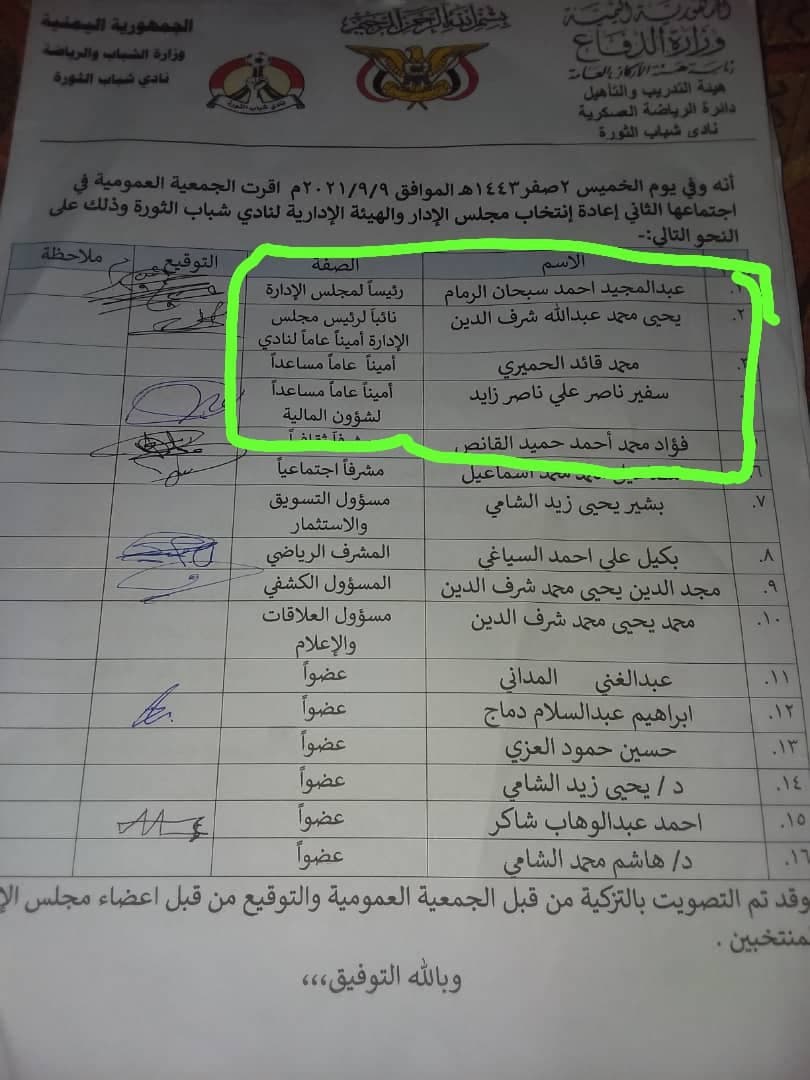 الجمهورية اليمنية
وزارة الشباب والرياضة
نادي شباب الثورة
نادي شباب الثورة
بسم الله الرحمن الرحيم
الجمهورية اليمنية
وزارة الدفاع
هيئة التدريب والتأهيل
دائرة الرياضة العسكرية
نادي شباب الثورة
أنه وفي يوم الخميس ٢صفر١٤٤٣هـ الموافق ٢٠٢١/٩/٩م اقرت الجمعية العمومية في
اجتماعها الثاني إعادة إنتخاب مجلس الإدار والهيئة الإدارية لنادي شباب الثورة وذلك على
النحو التالي:-
الاسم الصفة التوقيع ملاحظة
١. عبدالمجيد احمد سبحان الرمام رئيساً لمجلس الإدارة
٢. يحيى محمد عبدالله شرف الدين نائباً لرئيس مجلس
الإدارة أميناً عاماً لنادي
٣. محمد قائد الحميري أميناً عاماً مساعداً
سفير ناصر علي ناصر زايد أميناً عاماً مساعداً
لشؤون المالية
فؤاد محمد أحمد حميد القانص مشرفاً ثقافياً
٦. محمد اسماعيل مشرفاً اجتماعياً
٧. بشير يحيى زيد الشامي مسؤول التسويق
والاستثمار
٨. بكيل علي احمد السياغي المشرف الرياضي
٩. مجد الدين يحيى محمد شرف الدين المسؤول الكشفي
١٠. محمد يحيى محمد شرف الدين مسؤول العلاقات
والإعلام
١١. عبدالغني المداني عضواً
١٢. ابراهيم عبدالسلام دماج عضواً
١٣. حسين حمود العزي عضواً
١٤. د / يحيى زيد الشامي عضواً
١٥. احمد عبدالوهاب شاكر عضواً
١٦. د/ هاشم محمد الشامي عضواً
وقد تم التصويت بالتزكية من قبل الجمعية العمومية والتوقيع من قبل اعضاء مجلس الإ
لمنتخبين .
وبالله التوفيق،،،